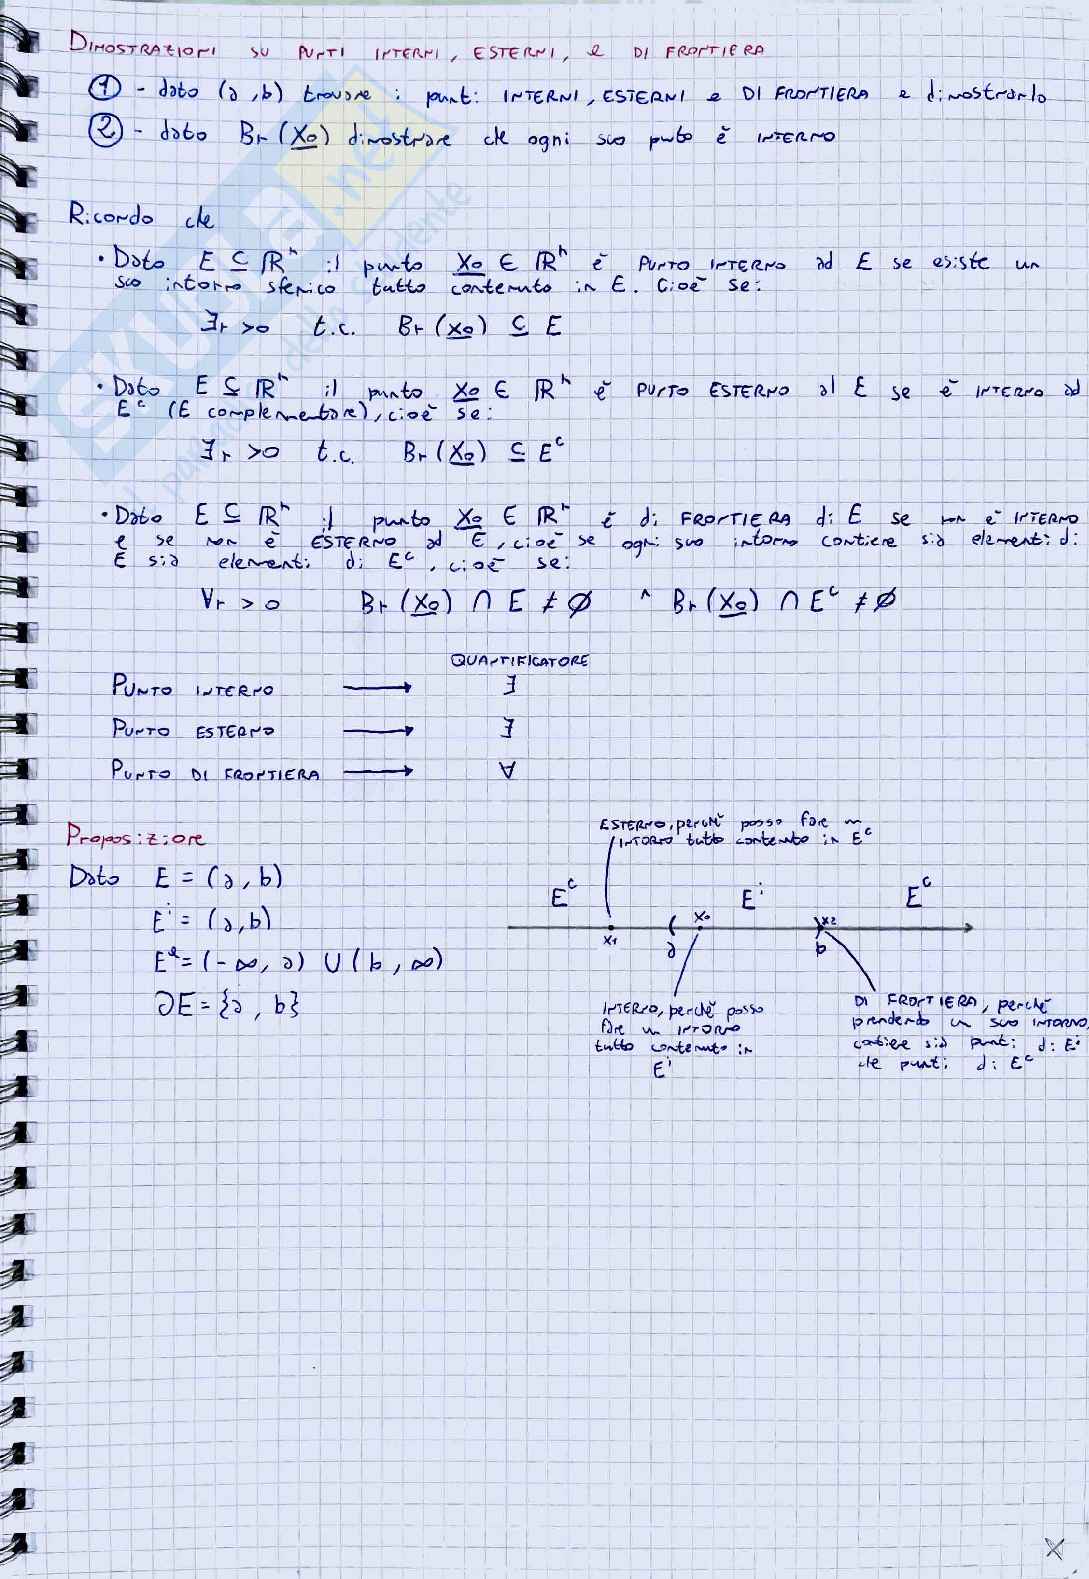 DIMOSTRAZIONI SU PUNTI INTERNI, ESTERNI, e DI FRONTIERA
① - dato (a, b) trovare i punti INTERNI, ESTERNI e DI FRONTIERA e dimostrarlo
② - dato Br(X₀) dimostrare che ogni suo punto è INTERNO
Ricordo che
• Dato E ⊆ ℝⁿ il punto X₀ ∈ ℝⁿ è PUNTO INTERNO ad E se esiste un
suo intorno sferico tutto contenuto in E. Cioè se:
∃r >0 t.c. Br(X₀) ⊆ E
• Dato E ⊆ ℝⁿ il punto X₀ ∈ ℝⁿ è PUNTO ESTERNO al E se è INTERNO ad
Eᶜ (E complementare), cioè se:
∃r >0 t.c. Br(X₀) ⊆ Eᶜ
• Dato E ⊆ ℝⁿ il punto X₀ ∈ ℝⁿ è di FRONTIERA di E se non è INTERNO
e se non è ESTERNO ad E, cioè se ogni suo intorno contiere sia elementi di
E sia elementi di Eᶜ, cioè se:
∀r > 0 Br(X₀) ∩ E ≠ ∅ ^ Br(X₀) ∩ Eᶜ ≠ ∅
QUANTIFICATORE
PUNTO INTERNO → ∃
PUNTO ESTERNO → ∃
PUNTO DI FRONTIERA → ∀
Proposizione
Dato E = (a, b)
Eⁱ = (a, b)
Eᵉ = (-∞, a) ∪ (b, ∞)
∂E = {a, b}
ESTERNO, perchè posso fare un
INTORNO tutto contenuto in Eᶜ
Eᶜ Eⁱ Eᶜ
X₁ a X₀ X₂ b
INTERNO, perchè posso
fare un INTORNO
tutto contenuto in
Eⁱ
DI FRONTIERA, perchè
prendendo un suo INTORNO,
contiene sia punti di Eⁱ
che punti di Eᶜ
SKUOLA.net
il punto dello studente